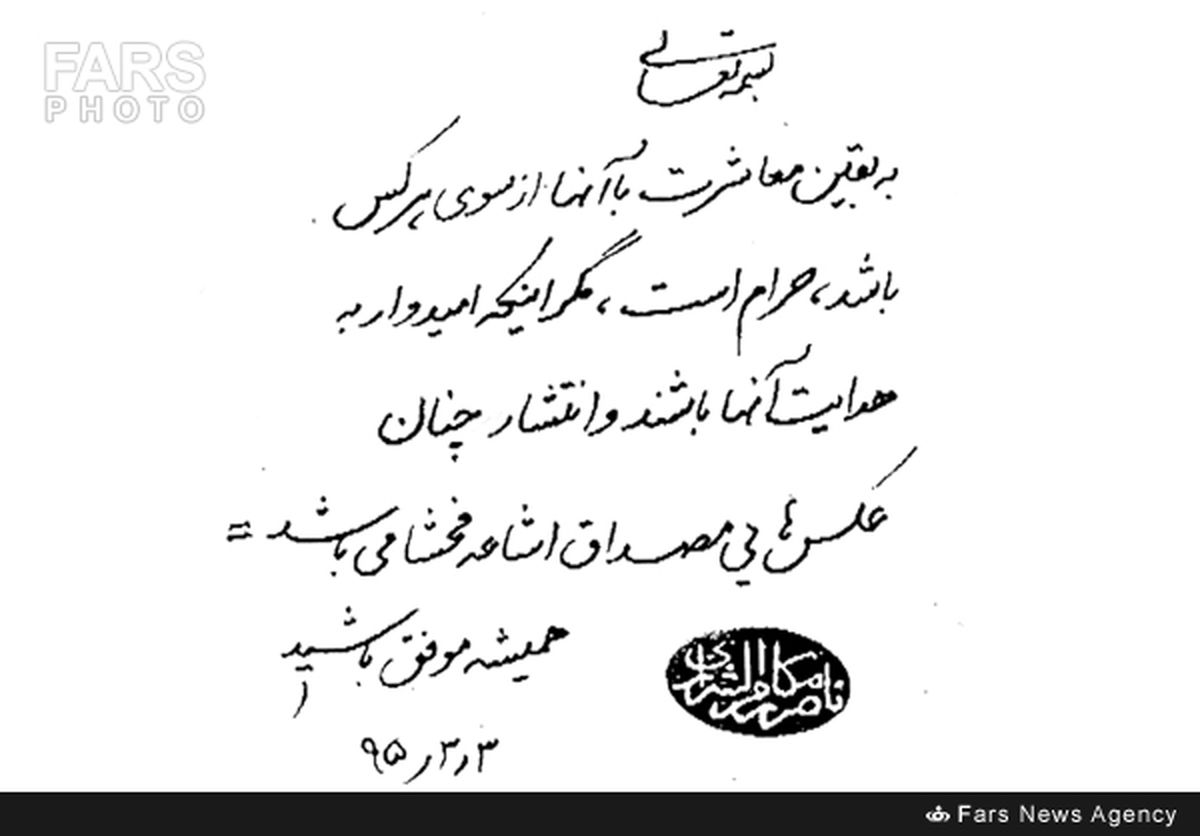 FARS
PHOTO
بسمه تعالی
به یقین معاشرت با آنها از سوی هر کس
باشد، حرام است، مگر اینکه امیدوار به
هدایت آنها باشند و انتشار چنان
عکس هایی مصداق اشاعه فحشا می باشد =
همیشه موفق باشید
۹۵٫۳٫۳
ناصر مکارم الشیرازی
Fars News Agency